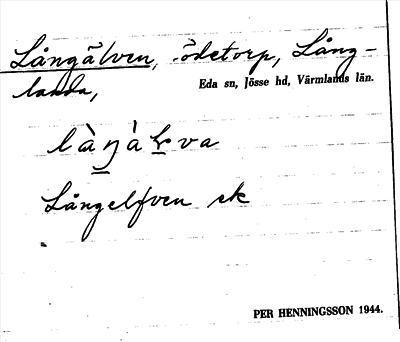 Långälven, ödetorp, Lång-
landa,
Eda sn, Jösse hd, Värmlands län.
là̱ŋàɽva
Långelfven ek
PER HENNINGSSON 1944.